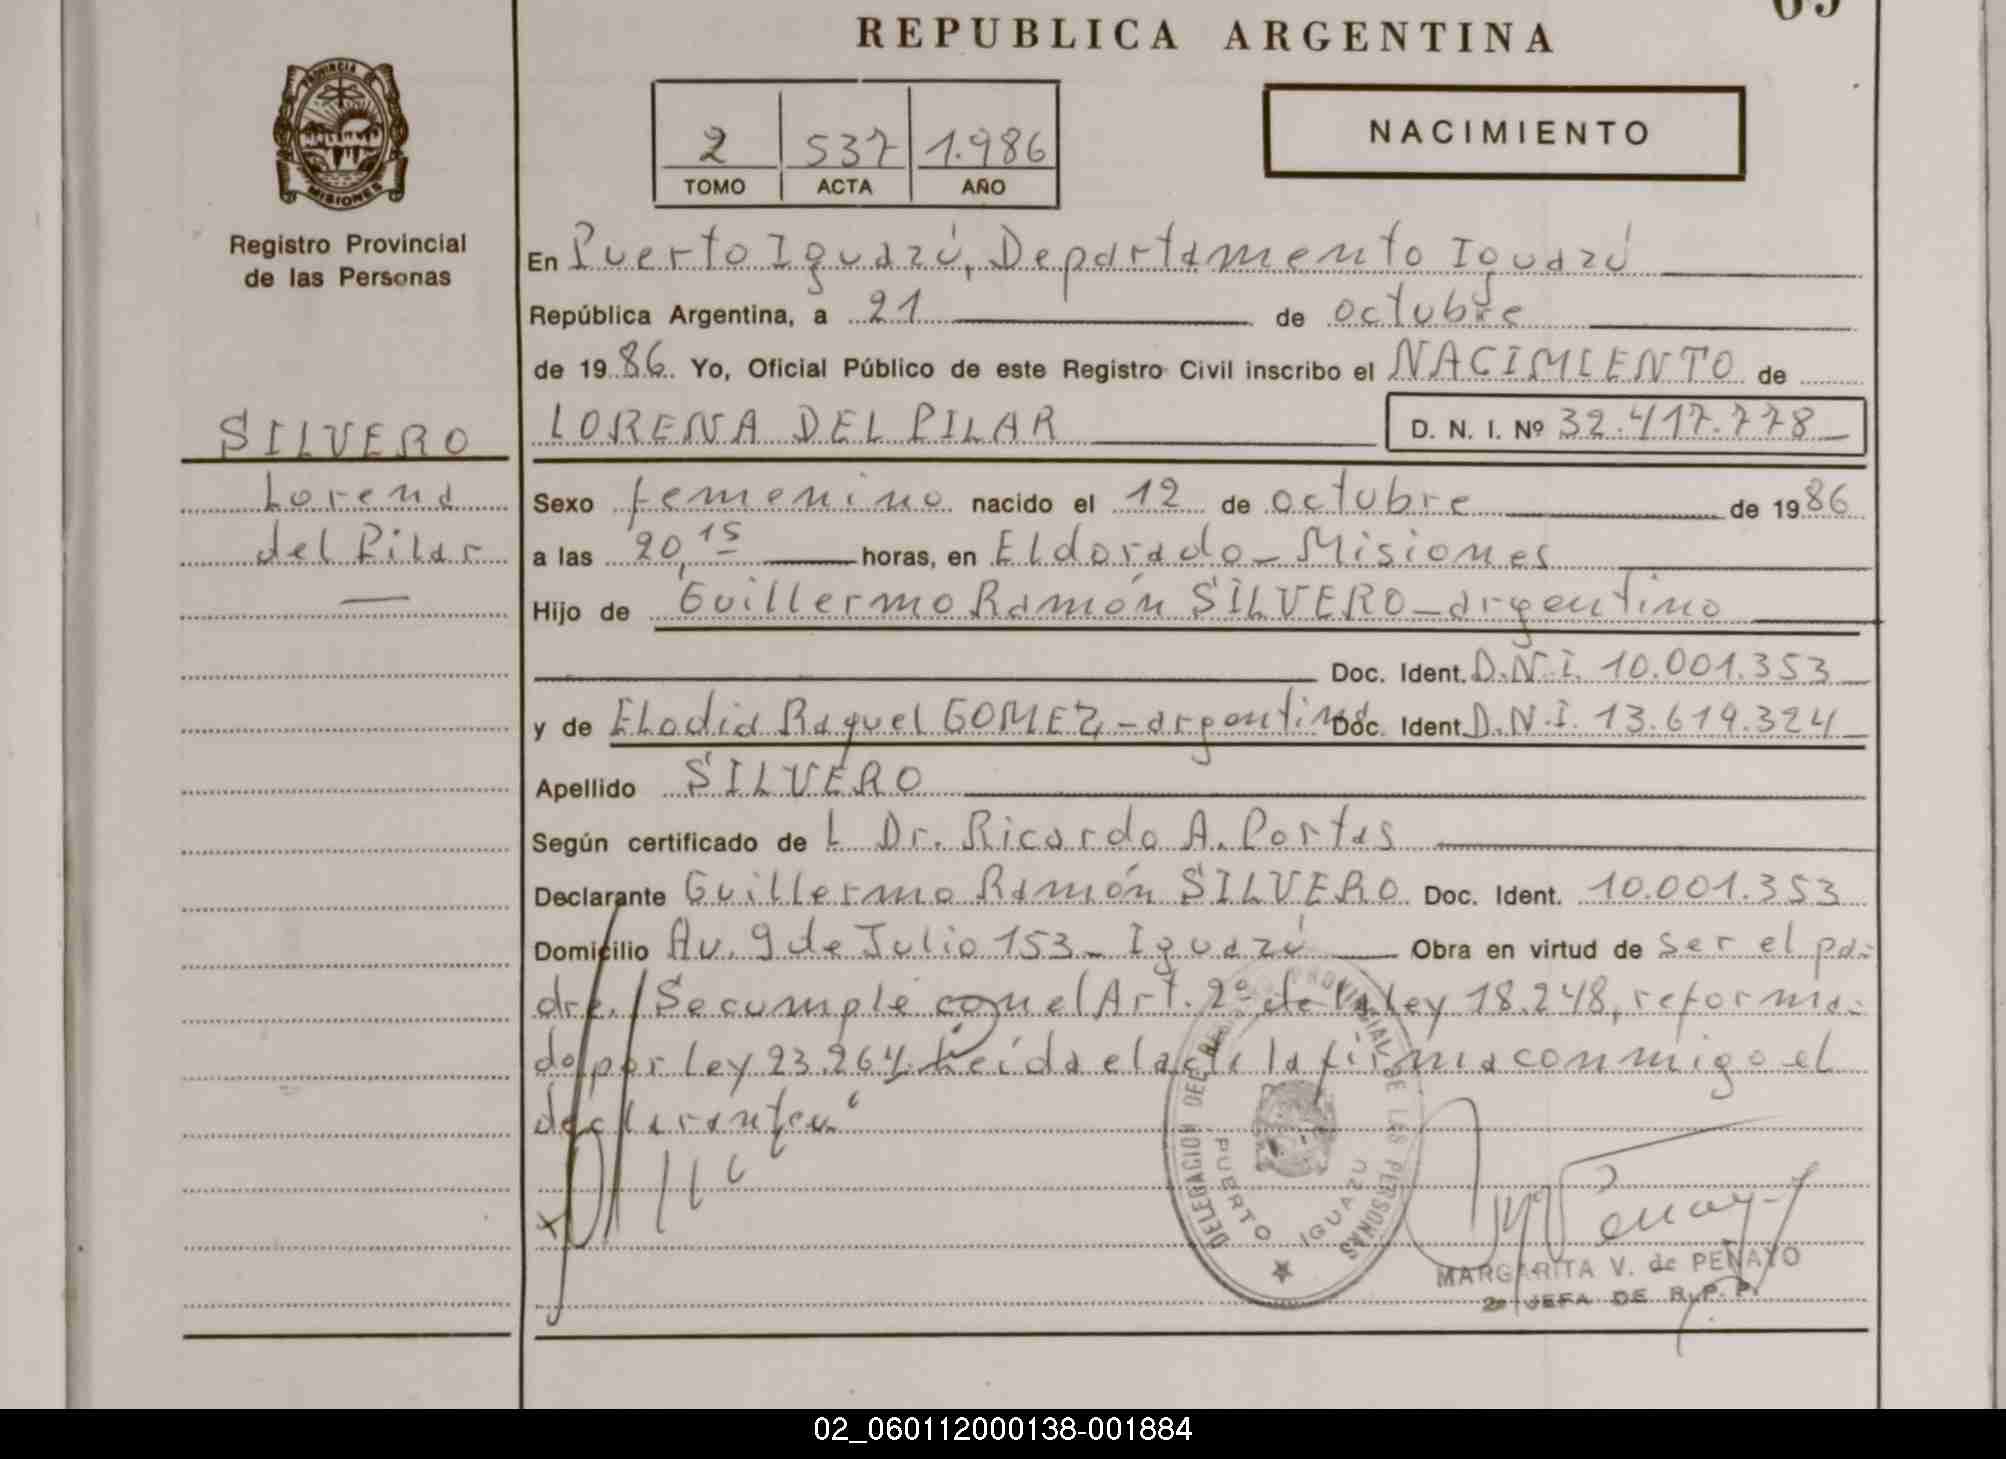 REPUBLICA ARGENTINA
PROVINCIA DE
MISIONES
Registro Provincial
de las Personas
2 537 1.986
TOMO ACTA AÑO
NACIMIENTO
En Puerto Iguazú, Departamento Iguazú
República Argentina, a 21 de octubre
de 1986. Yo, Oficial Público de este Registro Civil inscribo el NACIMIENTO de
SILVERO
LORENA DEL PILAR D. N. I. Nº 32.417.778
Lorena
del Pilar
Sexo femenino nacido el 12 de octubre de 1986
a las 20,15 horas, en Eldorado - Misiones
Hijo de Guillermo Ramón SILVERO - argentino
Doc. Ident. D.N.I. 10.001.353
y de Elodia Raquel GOMEZ - argentina Doc. Ident. D.N.I. 13.619.324
Apellido SILVERO
Según certificado de L Dr. Ricardo A. Portas
Declarante Guillermo Ramón SILVERO Doc. Ident. 10.001.353
Domicilio Av. 9 de Julio 153 - Iguazú Obra en virtud de ser el pa-
dre. Se cumple con el Art. 2º de la ley 18.248, reforma-
do por ley 23.264. Leída el acta la firma conmigo el
declarante
DELEGACION DEL REGISTRO PROVINCIAL DE LAS PERSONAS
PUERTO IGUAZU
MARGARITA V. de PENAYO
2ª JEFA DE R.P.P.
02_060112000138-001884